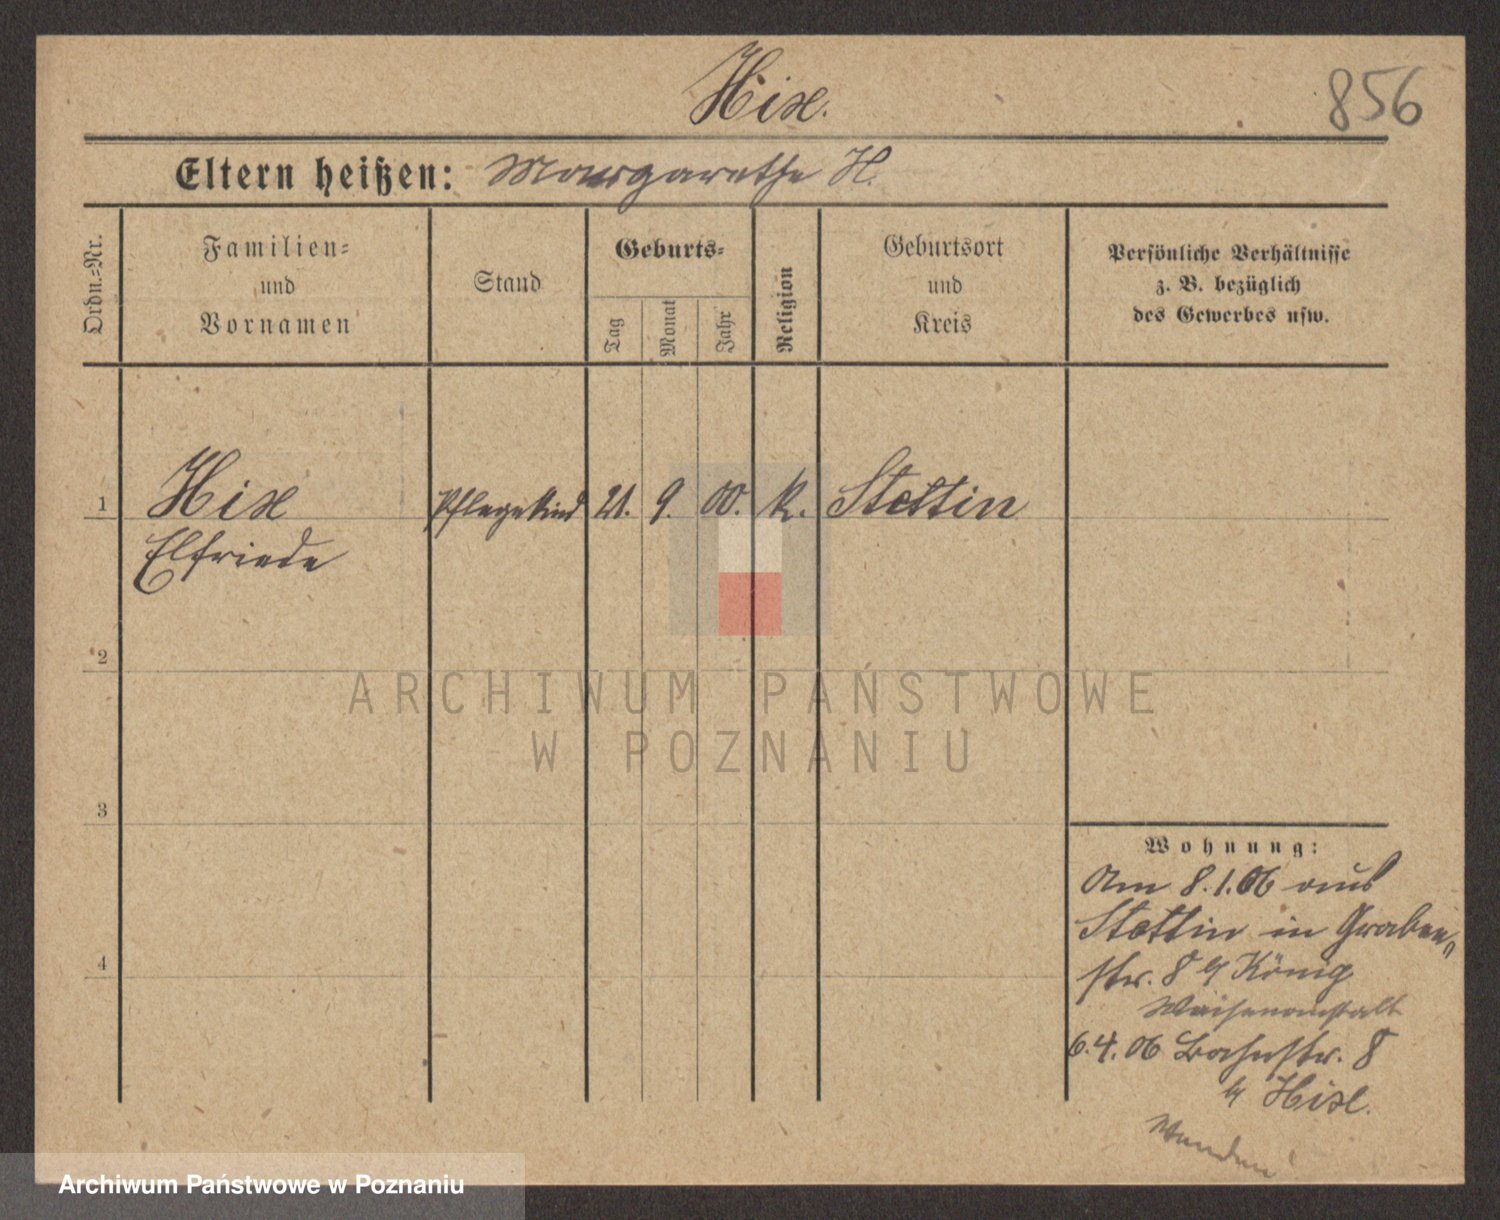 Hixe.
856
Eltern heißen: Margarethe H.
Ordn.=Nr.
Familien=
und
Vornamen
Stand
Geburts=
Tag
Monat
Jahr
Religion
Geburtsort
und
Kreis
Persönliche Verhältnisse
z. B. bezüglich
des Gewerbes usw.
1 Hixe Pflegekind 21. 9. 00. k. Stettin
Elfriede
2
3
4
Wohnung:
Am 8.1.06 aus
Stettin in Graben=
str. 8 b/ König
Waisenanstalt
6.4.06 Bahnstr. 8
b/ Hixe.
Wenden!
ARCHIWUM PAŃSTWOWE
W POZNANIU
Archiwum Państwowe w Poznaniu